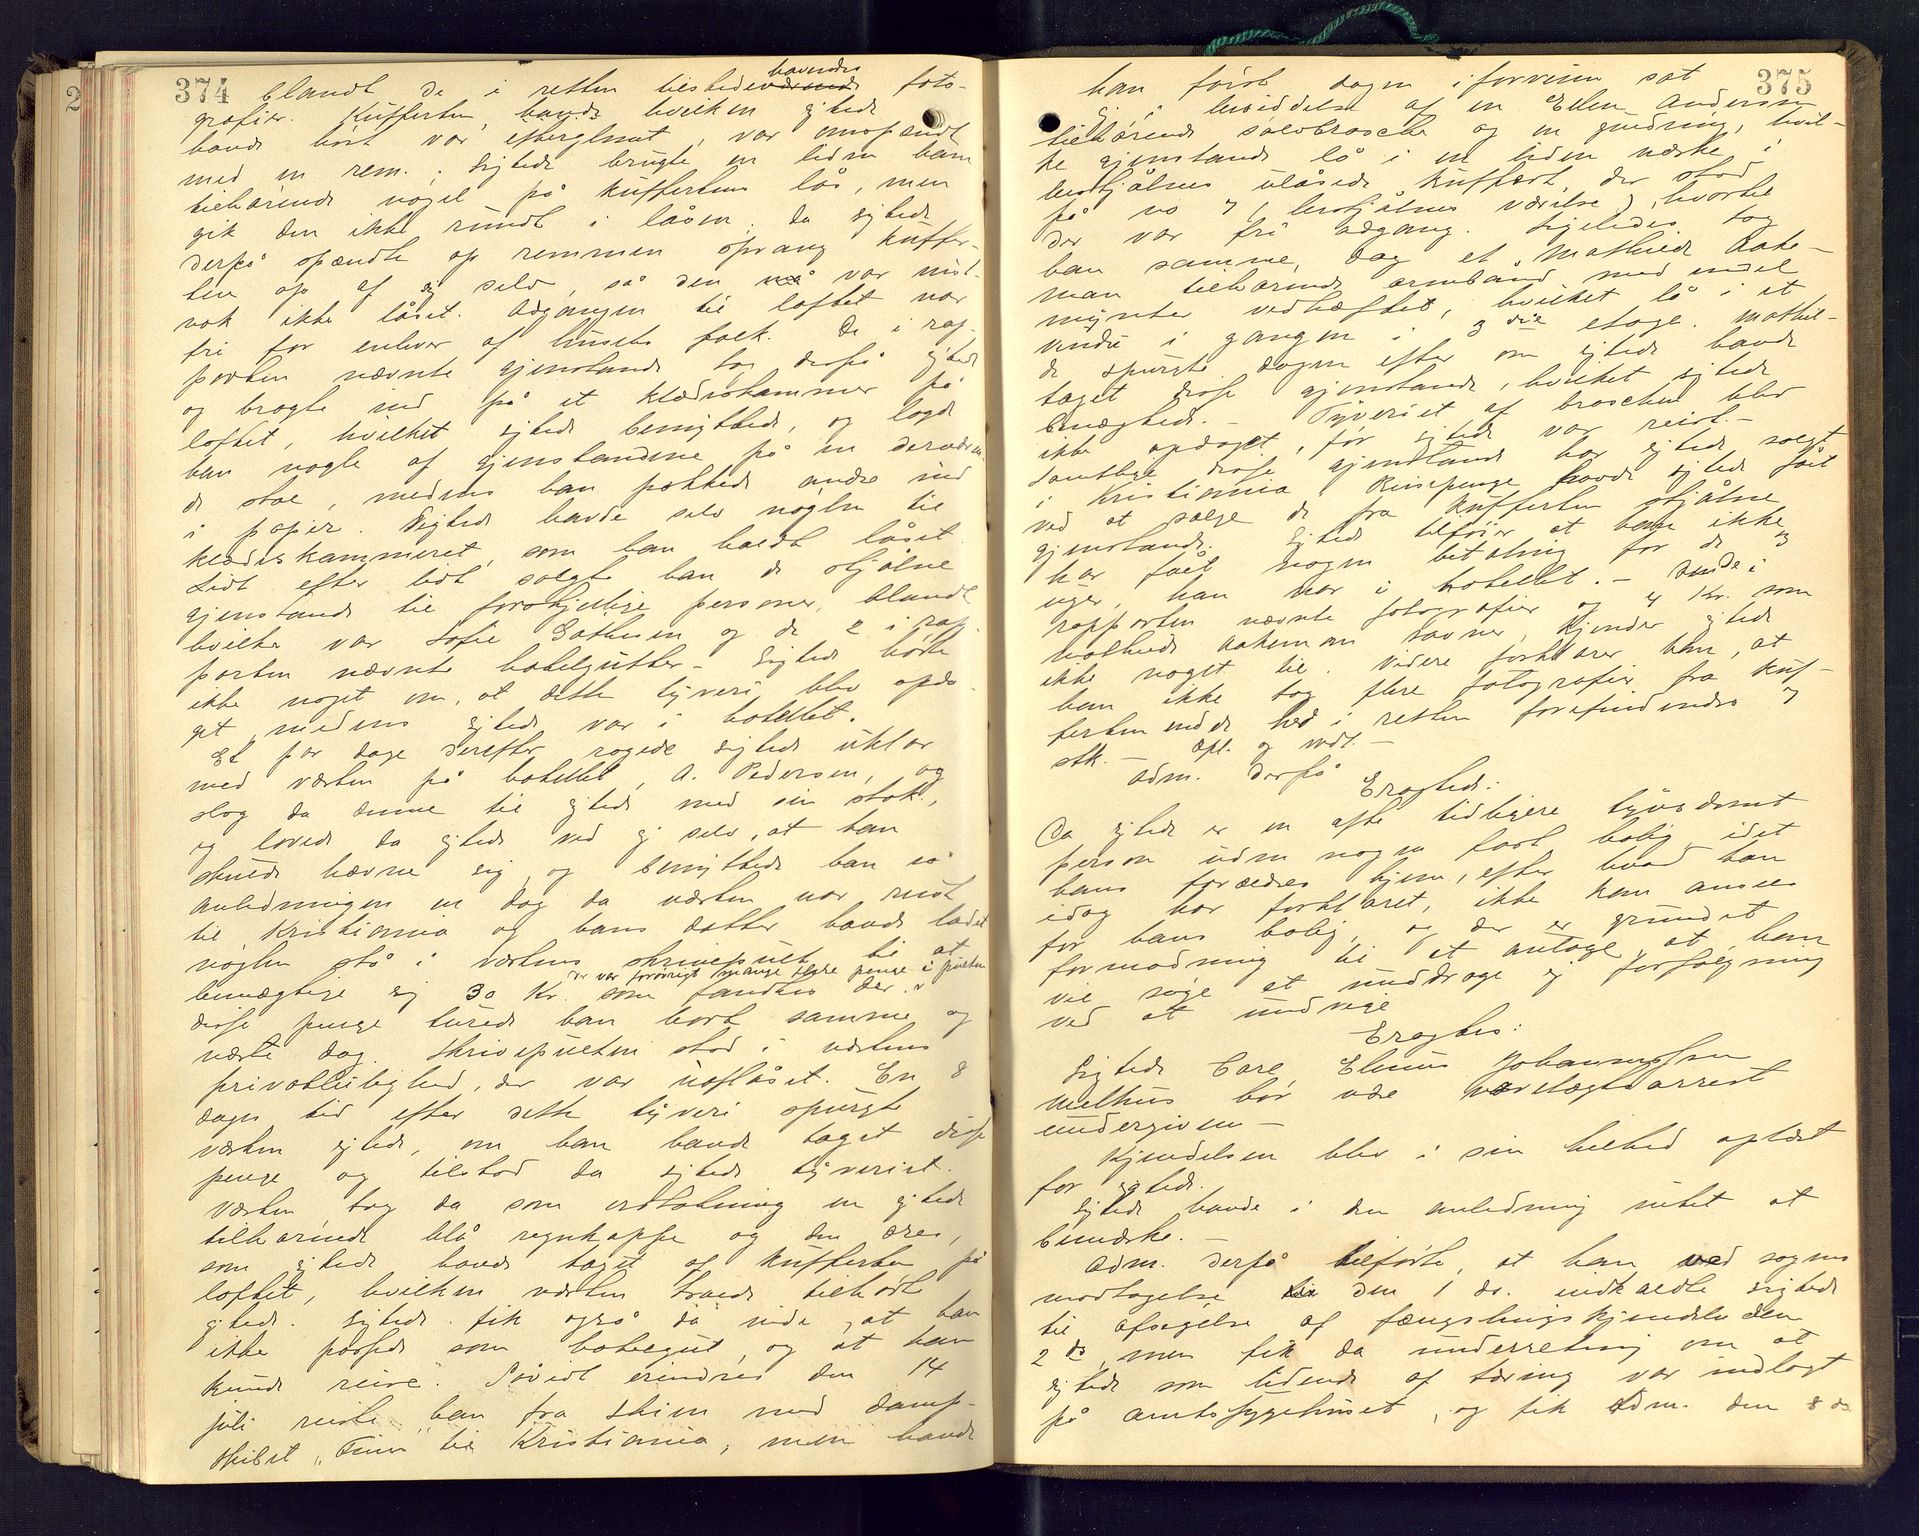 374
blandt de i retten tilstedeværende havendes foto-
grafier. Kufferten, havde hvilken sigtede
havde hørt var efterglemt, var omspændt
med en rem. Sigtede brugte en liden ham
tilhørende nøgel på kuffertens lås, men
gik den ikke rundt i låsen. Da sigtede
derpå spændte op remmen sprang kuffer-
ten op af sig selv, så den var nist-
nok ikke låset. Adgangen til loftet var
fri for enhver af husets folk. De i rap-
porten nævnte gjenstande tog derpå sigtede
og bragte ind på et klædeskammer på
loftet, hvilket sigtede benyttede, og lagde
han nogle af gjenstandene på en derværen-
de stol, medens han pakkede andre ind
i papir. Sigtede havde selv nøglen til
klædeskammeret, som han holdt låset.
Lidt efter lidt solgte han de stjålne
gjenstande til forskjellige personer, blandt
hvilke var Sofie Gathesen og de 2 i rap-
porten nævnte hotelgutter. Sigtede hørte
ikke noget om, at dette tyveri blev opda-
get medens sigtede var i hotellet.
Et par dage derefter ragede sigtede uklar
med værten på hotellet, A. Pedersen, og
slog da denne til sigtede med sin stok,
og lovede da sigtede ved sig selv, at han
skulde hævne sig, og benyttede han så
anledningen en dag da værten var reist
til Kristiania og hans datter havde ladet
nøglen stå i værtens skrivepult til at
bemægtige sig 30 Kr. som fandtes der. der var forøvrigt mange flere penge i pulten
Disse penge turede han bort samme og
næste dag. Skrivepulten stod i værtens
privatleilighed, der var uaflåset. En 8
dages tid efter dette tyveri spurgte
værten sigtede, om han havde taget disse
penge og tilstod da sigtede tyveriet.
Værten tog da som erstatning en sigtede
tilhørende blå regnkappe og den dres,
som sigtede havde taget af kufferten på
loftet, hvilken værten troede tilhørte
sigtede. Sigtede fik også da vide, at han
ikke passede som hotelgut, og at han
kunde reise. Såvidt erindres den 14
juli reiste han fra Skien med damp-
skibet "Tiur" til Kristiania, men havde
375
han først dagen iforveien sat
sig i besiddelse af en Ellen Andersen
tilhørende sølvbrosche og en guldring, hvil-
ke gjenstande lå i en liden næske i
bestjålnes ulåsede kuffert, der stod
på no 7 (bestjålnes værelse), hvortil
der var fri adgang. Ligeledes tog
han samme dag et Mathilde Aake-
man tilhørende armbånd med endel
mynter vedhæftet, hvilket lå i et
vindu i gangen i 3die etage. Mathil-
de spurgte dagen efter om sigtede havde
taget disse gjenstande, hvilket sigtede
benægtede. - Tyveriet af broschen blev
ikke opdaget, før sigtede var reist. -
Samtlige disse gjenstande har sigtede solgt
i Kristiania. Reisepenge havde sigtede fået
ved at sælge de fra kufferten stjålne
gjenstande. Sigtede tilføier at han ikke
har fået nogen betaling for de 3
uger, han var i hotellet. - Andre i
rapporten nævnte fotografier og 4 Kr. som
Mathilde Aakeman savner, kjender sigtede
ikke noget til. Videre forklarer han, at
han ikke tog flere fotografier fra kuf-
ferten end de her i retten forefindendes 7
stk. - Opl. og vedt. -
Adm. derpå
Eragted:
Da sigtede er en ofte tidligere tyvsdømt
person uden nogen fast bolig, idet
hans forældres hjem, efter hvad han
idag har forklaret, ikke kan ansees
for hans bolig, og der er grundet
formodning til at antage, at han
vil søge at unddrage sig forfølgning
ved at undvige
Eragtes:
Sigtede Carl Elenius Johannessen
Melhus bør være varetægtsarrest
undergiven. -
Kjendelsen blev i sin helhed oplæst
for sigtede.
Sigtede havde i den anledning intet at
bemærke. -
Adm. derpå tilførte, at han ved sagens
modtagelse den 1 ds. indkaldte sigtede
til afsigelse af fængslingskjendelse den
2 ds, men fik da underretning om at
sigtede som lidende af tæring var indlagt
på amtssygehuset, og fik Adm. den 8 ds